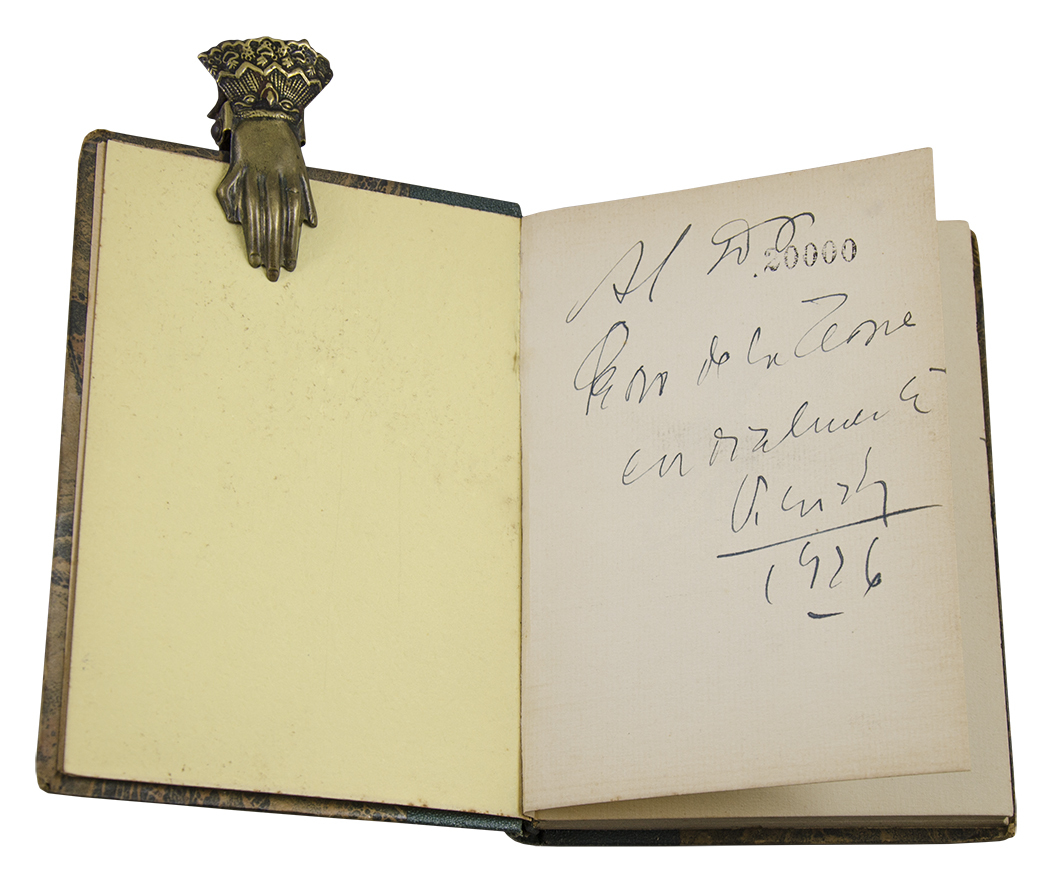 Al Dr
.20000
Pedro de la Torre
cordialmente
1926